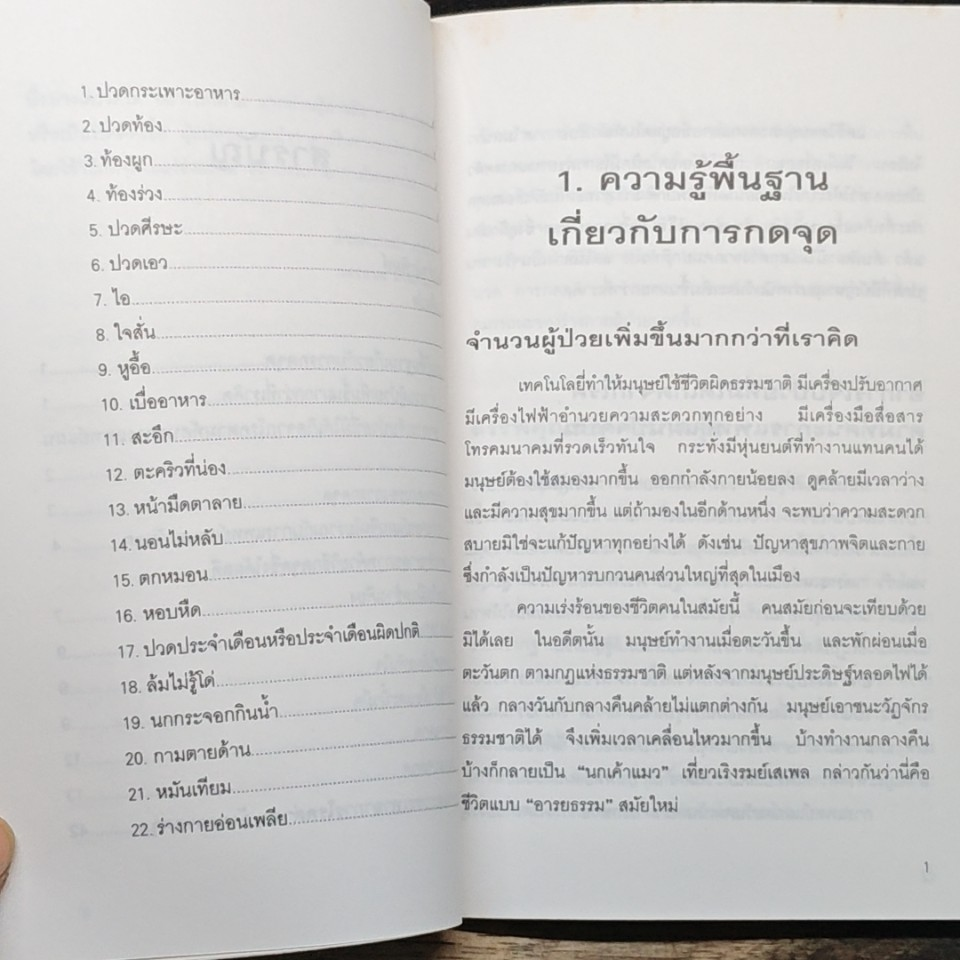 1. ปวดกระเพาะอาหาร
2. ปวดท้อง
3. ท้องผูก
4. ท้องร่วง
5. ปวดศีรษะ
6. ปวดเอว
7. ไอ
8. ใจสั่น
9. หูอื้อ
10. เบื่ออาหาร
11. สะอึก
12. ตะคริวที่น่อง
13. หน้ามืดตาลาย
14. นอนไม่หลับ
15. ตกหมอน
16. หอบหืด
17. ปวดประจำเดือนหรือประจำเดือนผิดปกติ
18. ล้มไม่รู้โด่
19. นกกระจอกกินน้ำ
20. กามตายด้าน
21. หมันเทียม
22. ร่างกายอ่อนเพลีย
1. ความรู้พื้นฐาน
เกี่ยวกับการกดจุด
จำนวนผู้ป่วยเพิ่มขึ้นมากกว่าที่เราคิด
เทคโนโลยี่ทำให้มนุษย์ใช้ชีวิตผิดธรรมชาติ มีเครื่องปรับอากาศ
มีเครื่องไฟฟ้าอำนวยความสะดวกทุกอย่าง มีเครื่องมือสื่อสาร
โทรคมนาคมที่รวดเร็วทันใจ กระทั่งมีหุ่นยนต์ที่ทำงานแทนคนได้
มนุษย์ต้องใช้สมองมากขึ้น ออกกำลังกายน้อยลง ดูคล้ายมีเวลาว่าง
และมีความสุขมากขึ้น แต่ถ้ามองในอีกด้านหนึ่ง จะพบว่าความสะดวก
สบายมิใช่จะแก้ปัญหาทุกอย่างได้ ดังเช่น ปัญหาสุขภาพจิตและกาย
ซึ่งกำลังเป็นปัญหารบกวนคนส่วนใหญ่ที่สุดในเมือง
ความเร่งร้อนของชีวิตคนในสมัยนี้ คนสมัยก่อนจะเทียบด้วย
มิได้เลย ในอดีตนั้น มนุษย์ทำงานเมื่อตะวันขึ้น และพักผ่อนเมื่อ
ตะวันตก ตามกฎแห่งธรรมชาติ แต่หลังจากมนุษย์ประดิษฐ์หลอดไฟได้
แล้ว กลางวันกับกลางคืนคล้ายไม่แตกต่างกัน มนุษย์เอาชนะวัฏจักร
ธรรมชาติได้ จึงเพิ่มเวลาเคลื่อนไหวมากขึ้น บ้างทำงานกลางคืน
บ้างก็กลายเป็น “นกเค้าแมว” เที่ยวเริงรมย์เสเพล กล่าวกันว่านี่คือ
ชีวิตแบบ “อารยธรรม” สมัยใหม่
1